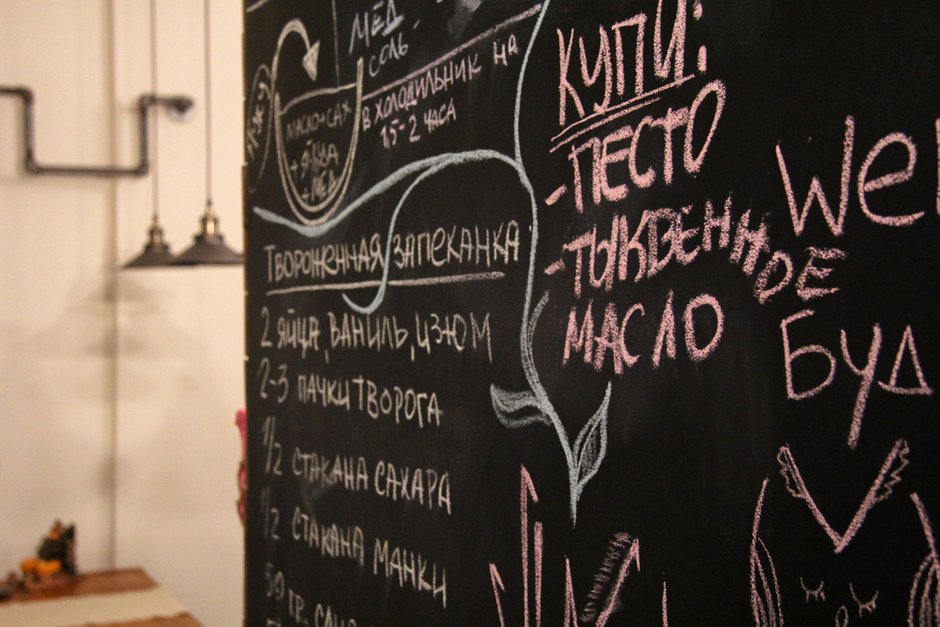 МЁД
СОЛЬ
МАСЛО+САХ
+ ЯЙЦА
+ МЁД
В ХОЛОДИЛЬНИК НА
1,5-2 ЧАСА
ТВОРОЖЕННАЯ ЗАПЕКАНКА
2 ЯЙЦА, ВАНИЛЬ, ИЗЮМ
2-3 ПАЧКИ ТВОРОГА
1/2 СТАКАНА САХАРА
1/2 СТАКАНА МАНКИ
50 ГР.
КУПИ:
-ПЕСТО
-ТЫКВЕННОЕ
МАСЛО
We
БУД